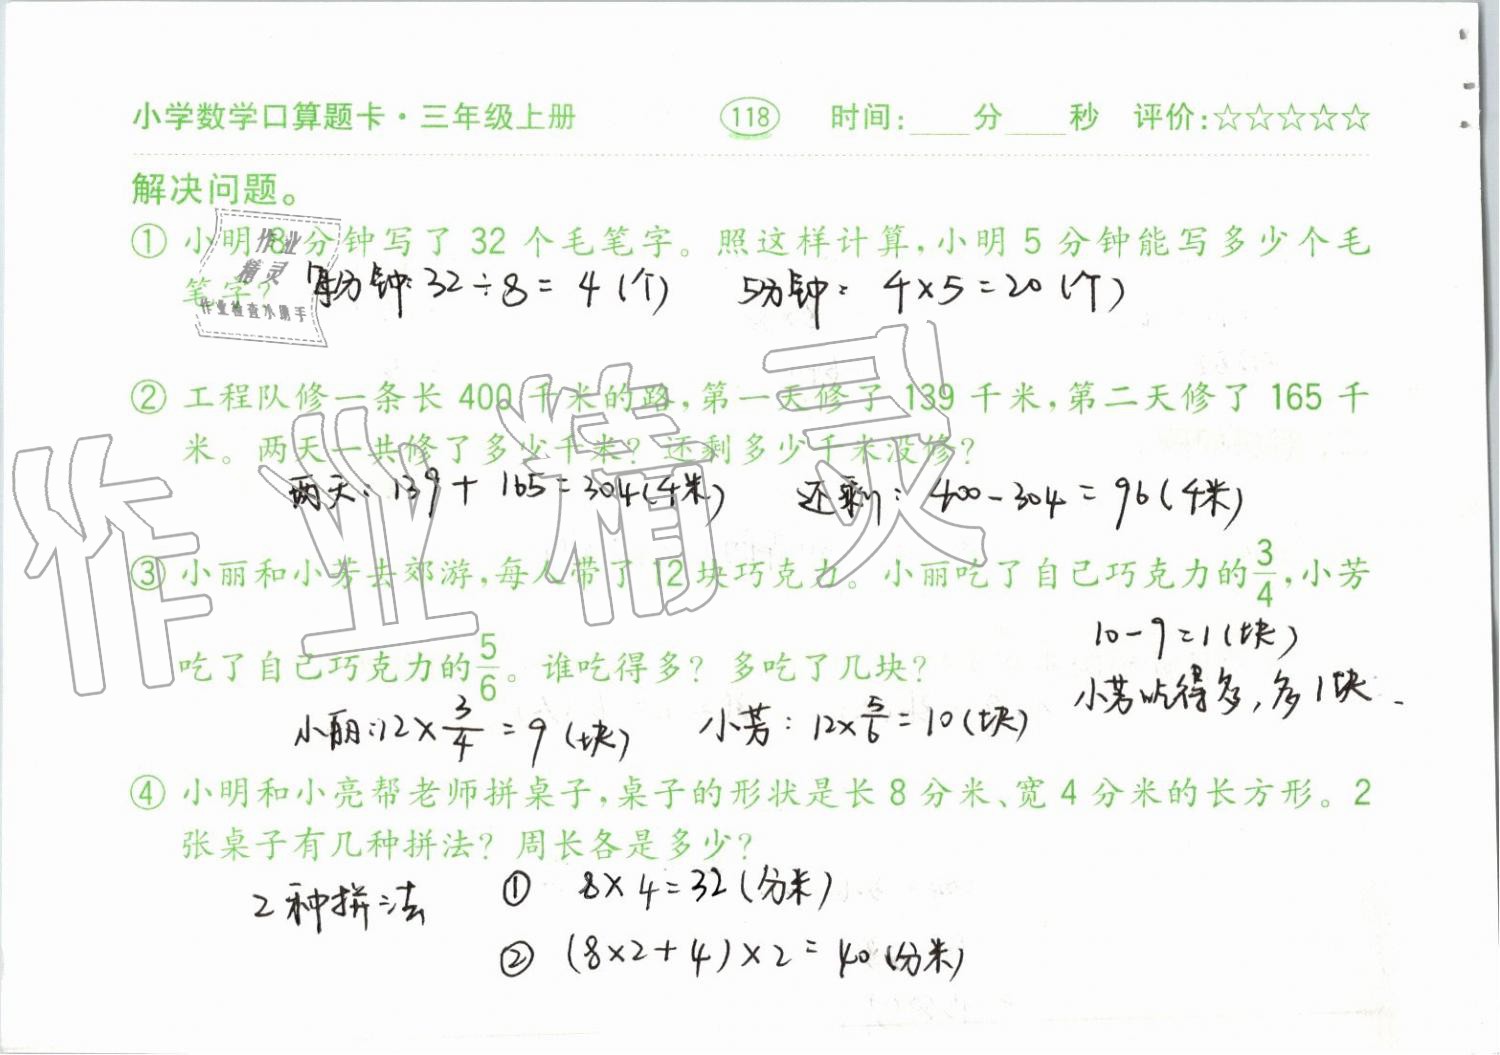 小学数学口算题卡·三年级上册 118 时间:____分____秒 评价:☆☆☆☆☆
解决问题。
① 小明 8 分钟写了 32 个毛笔字。照这样计算,小明 5 分钟能写多少个毛
笔字?
每分钟:32÷8=4(个) 5分钟: 4×5=20(个)
② 工程队修一条长 400 千米的路,第一天修了 139 千米,第二天修了 165 千
米。两天一共修了多少千米? 还剩多少千米没修?
两天:139+165=304(千米) 还剩:400-304=96(千米)
③ 小丽和小芳去郊游,每人带了 12 块巧克力。小丽吃了自己巧克力的3/4,小芳
吃了自己巧克力的5/6。谁吃得多? 多吃了几块?
10-9=1(块)
小芳吃得多,多1块.
小丽:12×3/4=9(块) 小芳:12×5/6=10(块)
④ 小明和小亮帮老师拼桌子,桌子的形状是长 8 分米、宽 4 分米的长方形。2
张桌子有几种拼法? 周长各是多少?
2种拼法 ① 8×4=32(分米)
② (8×2+4)×2=40(分米)
作业
精灵
作业检查小助手
作业精灵